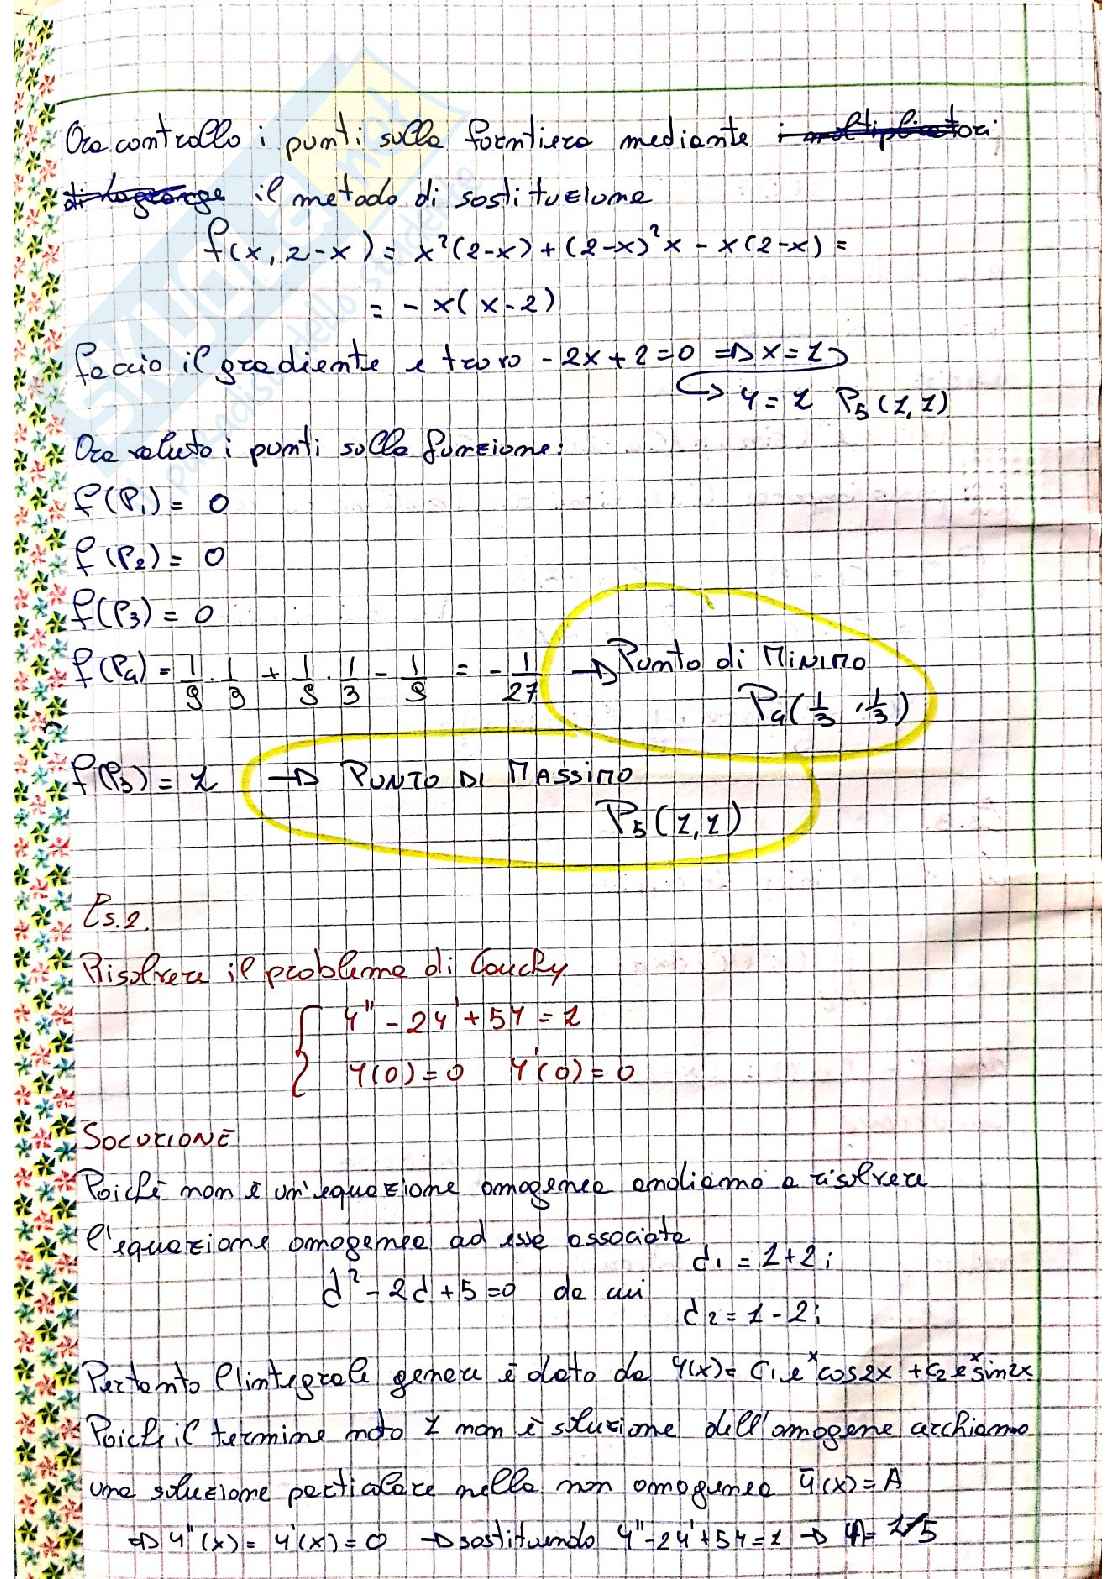 Ora controllo i punti sulla forntiera mediante i moltiplicatori
di Lagrange il metodo di sostituzione
f(x, 2-x) = x²(2-x) + (2-x)²x - x(2-x) =
= - x(x-2)
faccio il gradiente e trovo -2x+2=0 => x=1
↳ y=1 P5(1,1)
Ora valuto i punti sulla funzione:
f(P1) = 0
f(P2) = 0
f(P3) = 0
f(P4) = 1/9 · 1/3 + 1/9 · 1/3 - 1/9 = - 1/27 → Punto di MINIMO
P4(1/3, 1/3)
f(P5) = 1 → PUNTO DI MASSIMO
P5(1,1)
Es.2.
Risolvere il problema di Cauchy
{ y'' - 2y' + 5y = 1
y(0)=0 y'(0)=0
SOLUZIONE
Poichè non è un'equazione omogenea andiamo a risolvere
l'equazione omogenea ad essa associata
d1 = 1+2i
d² - 2d + 5 = 0 da cui
d2 = 1-2i
Pertanto l'integrale genera è dato da y(x)= C1 e^x cos2x + C2 e^x sin2x
Poichè il termine noto 1 non è soluzione dell'omogene cerchiamo
una soluzione particolare nella non omogenea ȳ(x) = A
=> y''(x) = y'(x) = 0 → sostituendo y''-2y'+5y=1 → A= 1/5